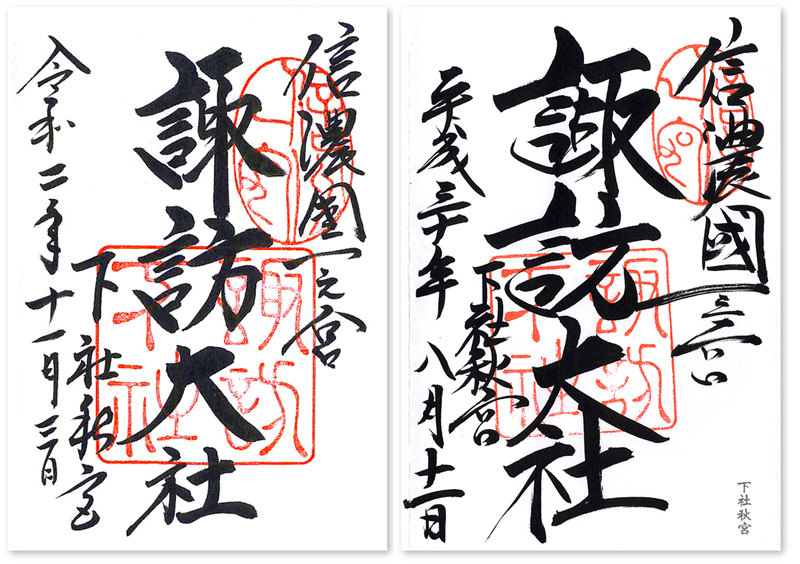 信濃國一之宮
諏訪大社
下社秋宮
令和二年十一月三日
諏訪
下社
信濃國一之宮
諏訪大社
下社秋宮
平成三十年八月十一日
諏訪
下社
下社秋宮